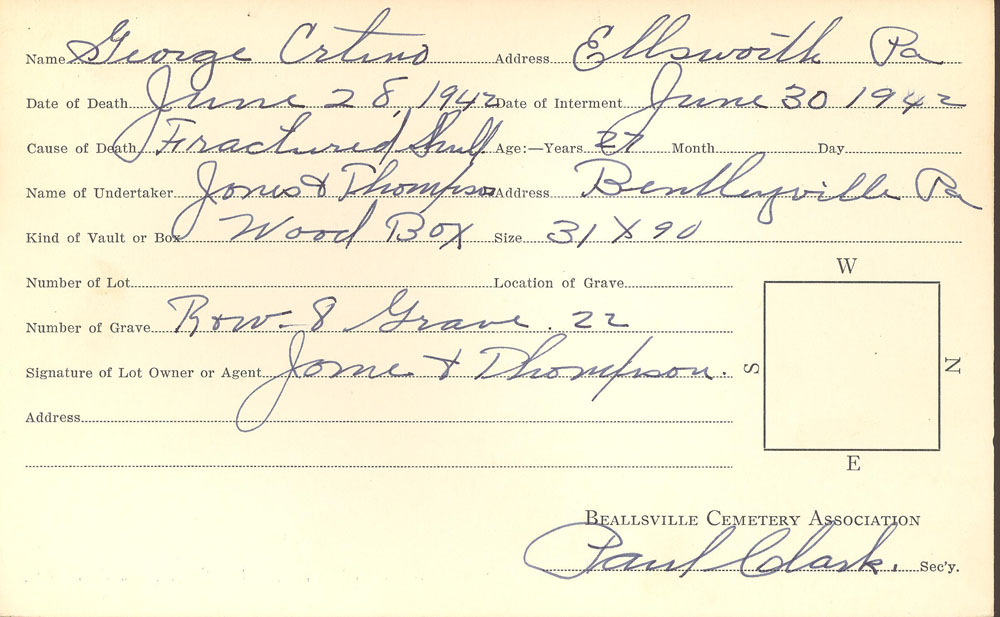 Name George Crtino Address Ellsworth Pa
Date of Death June 28, 1942 Date of Interment June 30 1942
Cause of Death Fractured Skull Age:—Years 27 Month Day
Name of Undertaker Jones & Thompson Address Bentleyville Pa
Kind of Vault or Box Wood Box Size 31 X 90
Number of Lot Location of Grave
W
Number of Grave Row-8 Grave. 22
Signature of Lot Owner or Agent Jome & Thompson.
S N
Address
E
BEALLSVILLE CEMETERY ASSOCIATION
Paul Clark. Sec'y.